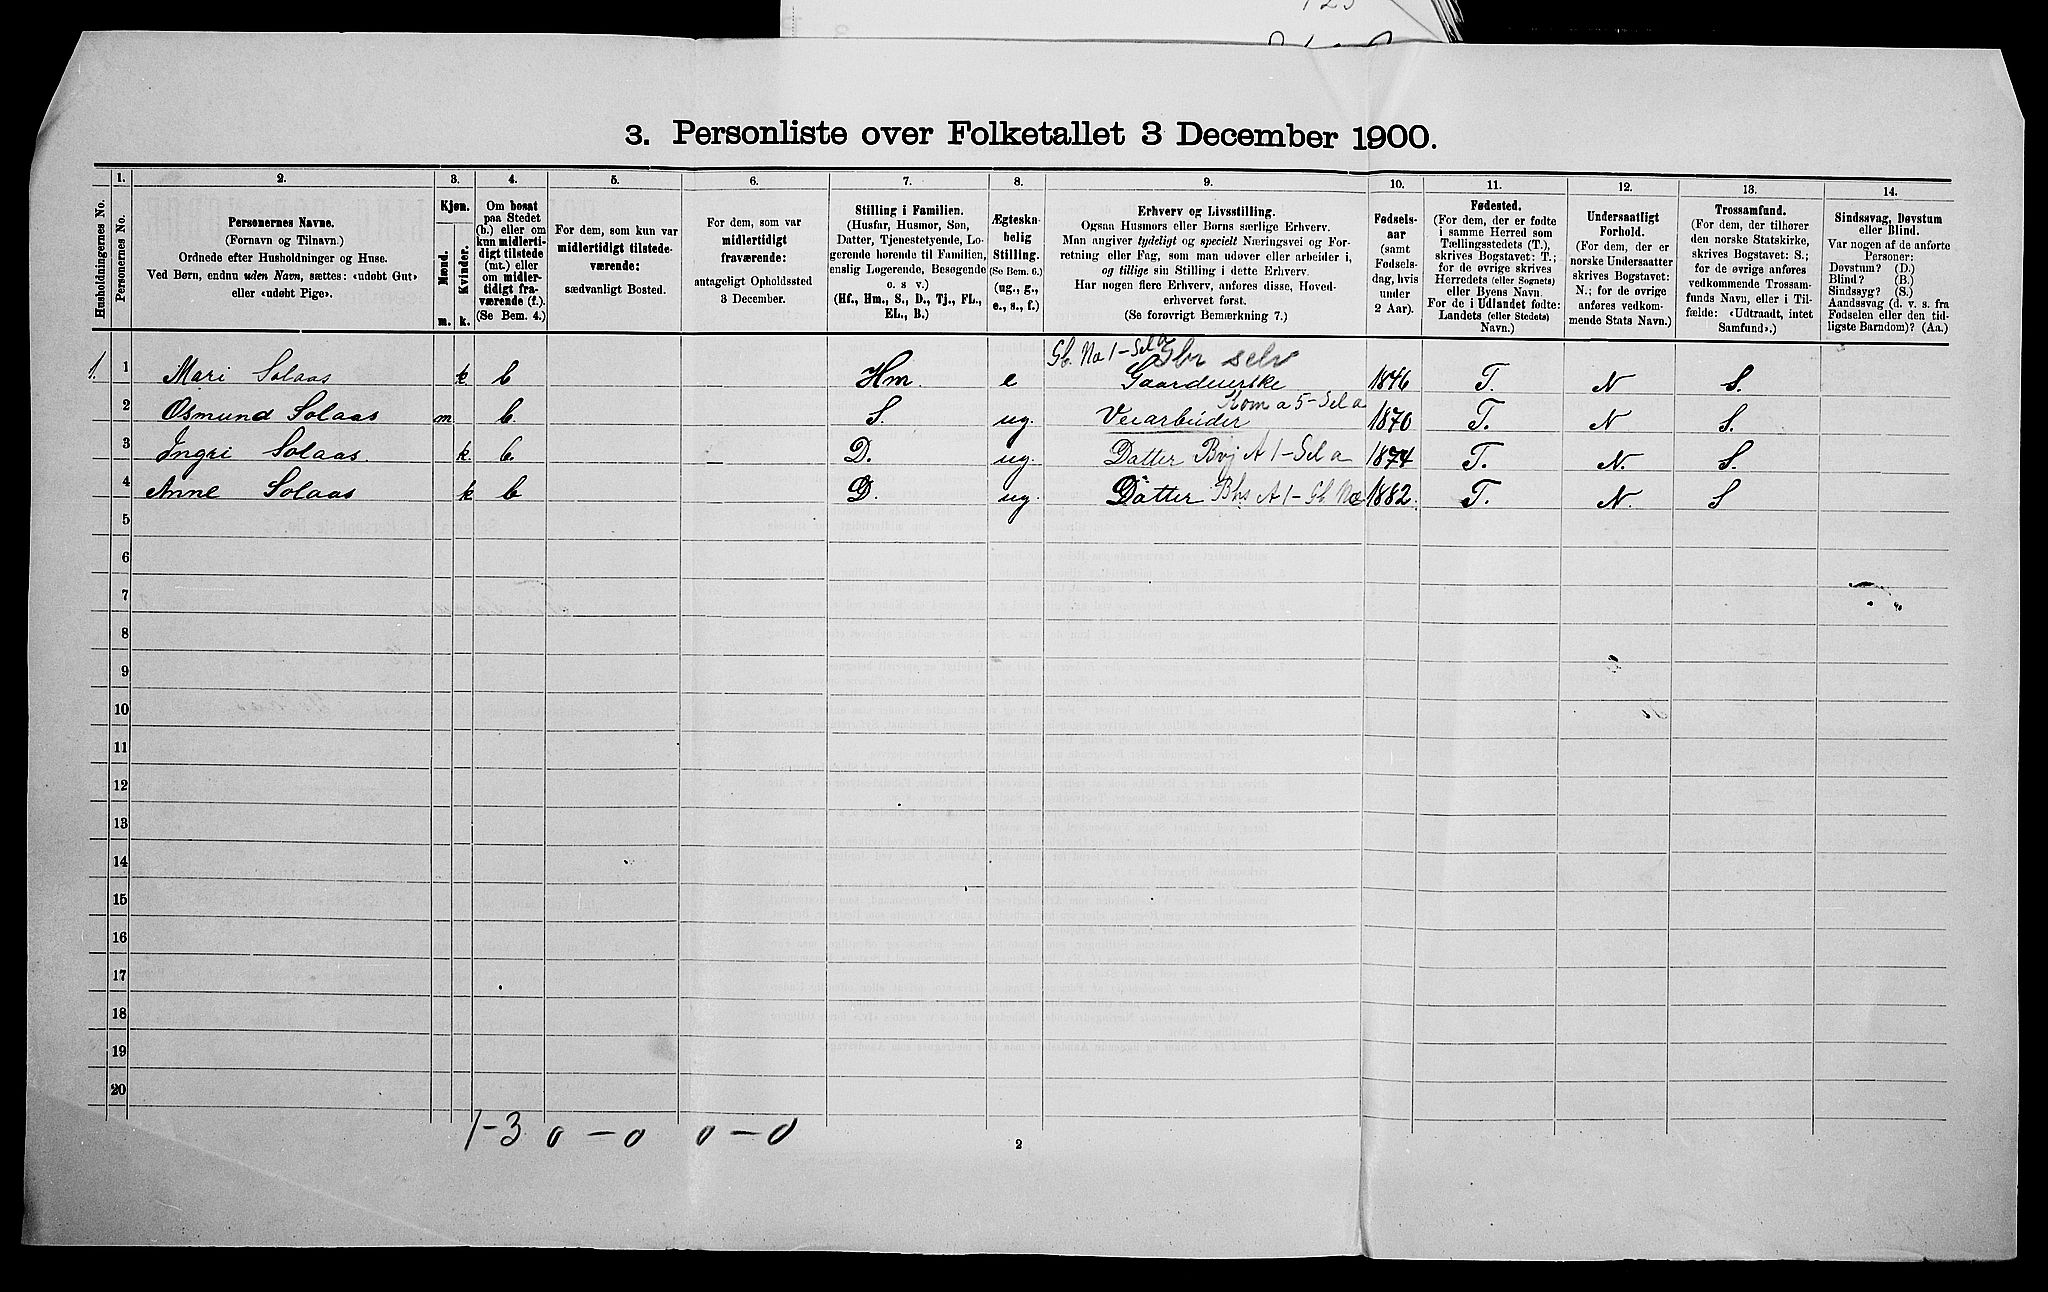 3. Personliste over Folketallet 3 December 1900.
Husholdningernes No.
1. Personernes No.
2. Personernes Navne.
(Fornavn og Tilnavn.)
Ordnede efter Husholdninger og Huse.
Ved Børn, endnu uden Navn, sættes: «udøbt Gut»
eller «udøbt Pige».
3. Kjøn.
Mænd. Kvinder.
m. k.
4. Om bosat
paa Stedet
(b.) eller om
kun midlerti-
digt tilstede
(mt.) eller
om midler-
tidigt fra-
værende (f.)
(Se Bem. 4.)
5. For dem, som kun var
midlertidigt tilstede-
værende:
sædvanligt Bosted.
6. For dem, som var
midlertidigt
fraværende:
antageligt Opholdssted
3 December.
7. Stilling i Familien.
(Husfar, Husmor, Søn,
Datter, Tjenestetyende, Lo-
gerende hørende til Familien,
enslig Logerende, Besøgende
o. s. v.)
(Hf., Hm., S., D., Tj., FL.,
EL., B.)
8. Ægteska-
belig
Stilling.
(Se Bem. 6.)
(ug., g.,
e., s., f.)
9. Erhverv og Livsstilling.
Ogsaa Husmors eller Børns særlige Erhverv.
Man angiver tydeligt og specielt Næringsvei og For-
retning eller Fag, som man udøver eller arbeider i,
og tillige sin Stilling i dette Erhverv.
Har nogen flere Erhverv, anføres disse, Hoved-
erhvervet først.
(Se forøvrigt Bemærkning 7.)
10. Fødsels-
aar
(samt
Fødsels-
dag, hvis
under
2 Aar).
11. Fødested.
(For dem, der er fødte
i samme Herred som
Tællingsstedets (T.),
skrives Bogstavet: T.;
for de øvrige skrives
Herredets (eller Sognets)
eller Byens Navn.
For de i Udlandet fødte:
Landets (eller Stedets)
Navn.)
12. Undersaatligt
Forhold.
(For dem, der er
norske Undersaatter
skrives Bogstavet:
N.; for de øvrige
anføres vedkom-
mende Stats Navn.)
13. Trossamfund.
(For dem, der tilhører
den norske Statskirke,
skrives Bogstavet: S.;
for de øvrige anføres
vedkommende Trossam-
funds Navn, eller i Til-
fælde: «Udtraadt, intet
Samfund».)
14. Sindssvag, Døvstum
eller Blind.
Var nogen af de anførte
Personer:
Døvstum? (D.)
Blind? (B.)
Sindssyg? (S.)
Aandssvag (d. v. s. fra
Fødselen eller den tid-
ligste Barndom)? (Aa.)
Gb. Na 1 - Sel a Gbr selv
1. 1 Mari Solaas k b Hm e Gaardmerske 1846 T. N S.
Kom a 5 - Sel a
2 Osmund Solaas m b. S. ug. Veiarbeider 1870 T. N S.
3 Ingri Solaas. k. b. D. ug. Datter Bvj A 1 - Sel a 1874 T. N. S.
4 Anne Solaas k b D. ug. Datter Bhs A 1 - Gb. Na 1882. T. N. S
5
6
7
8
9
10
11
12
13
14
15
16
17
18
19
20
1-3 0-0 0-0
2